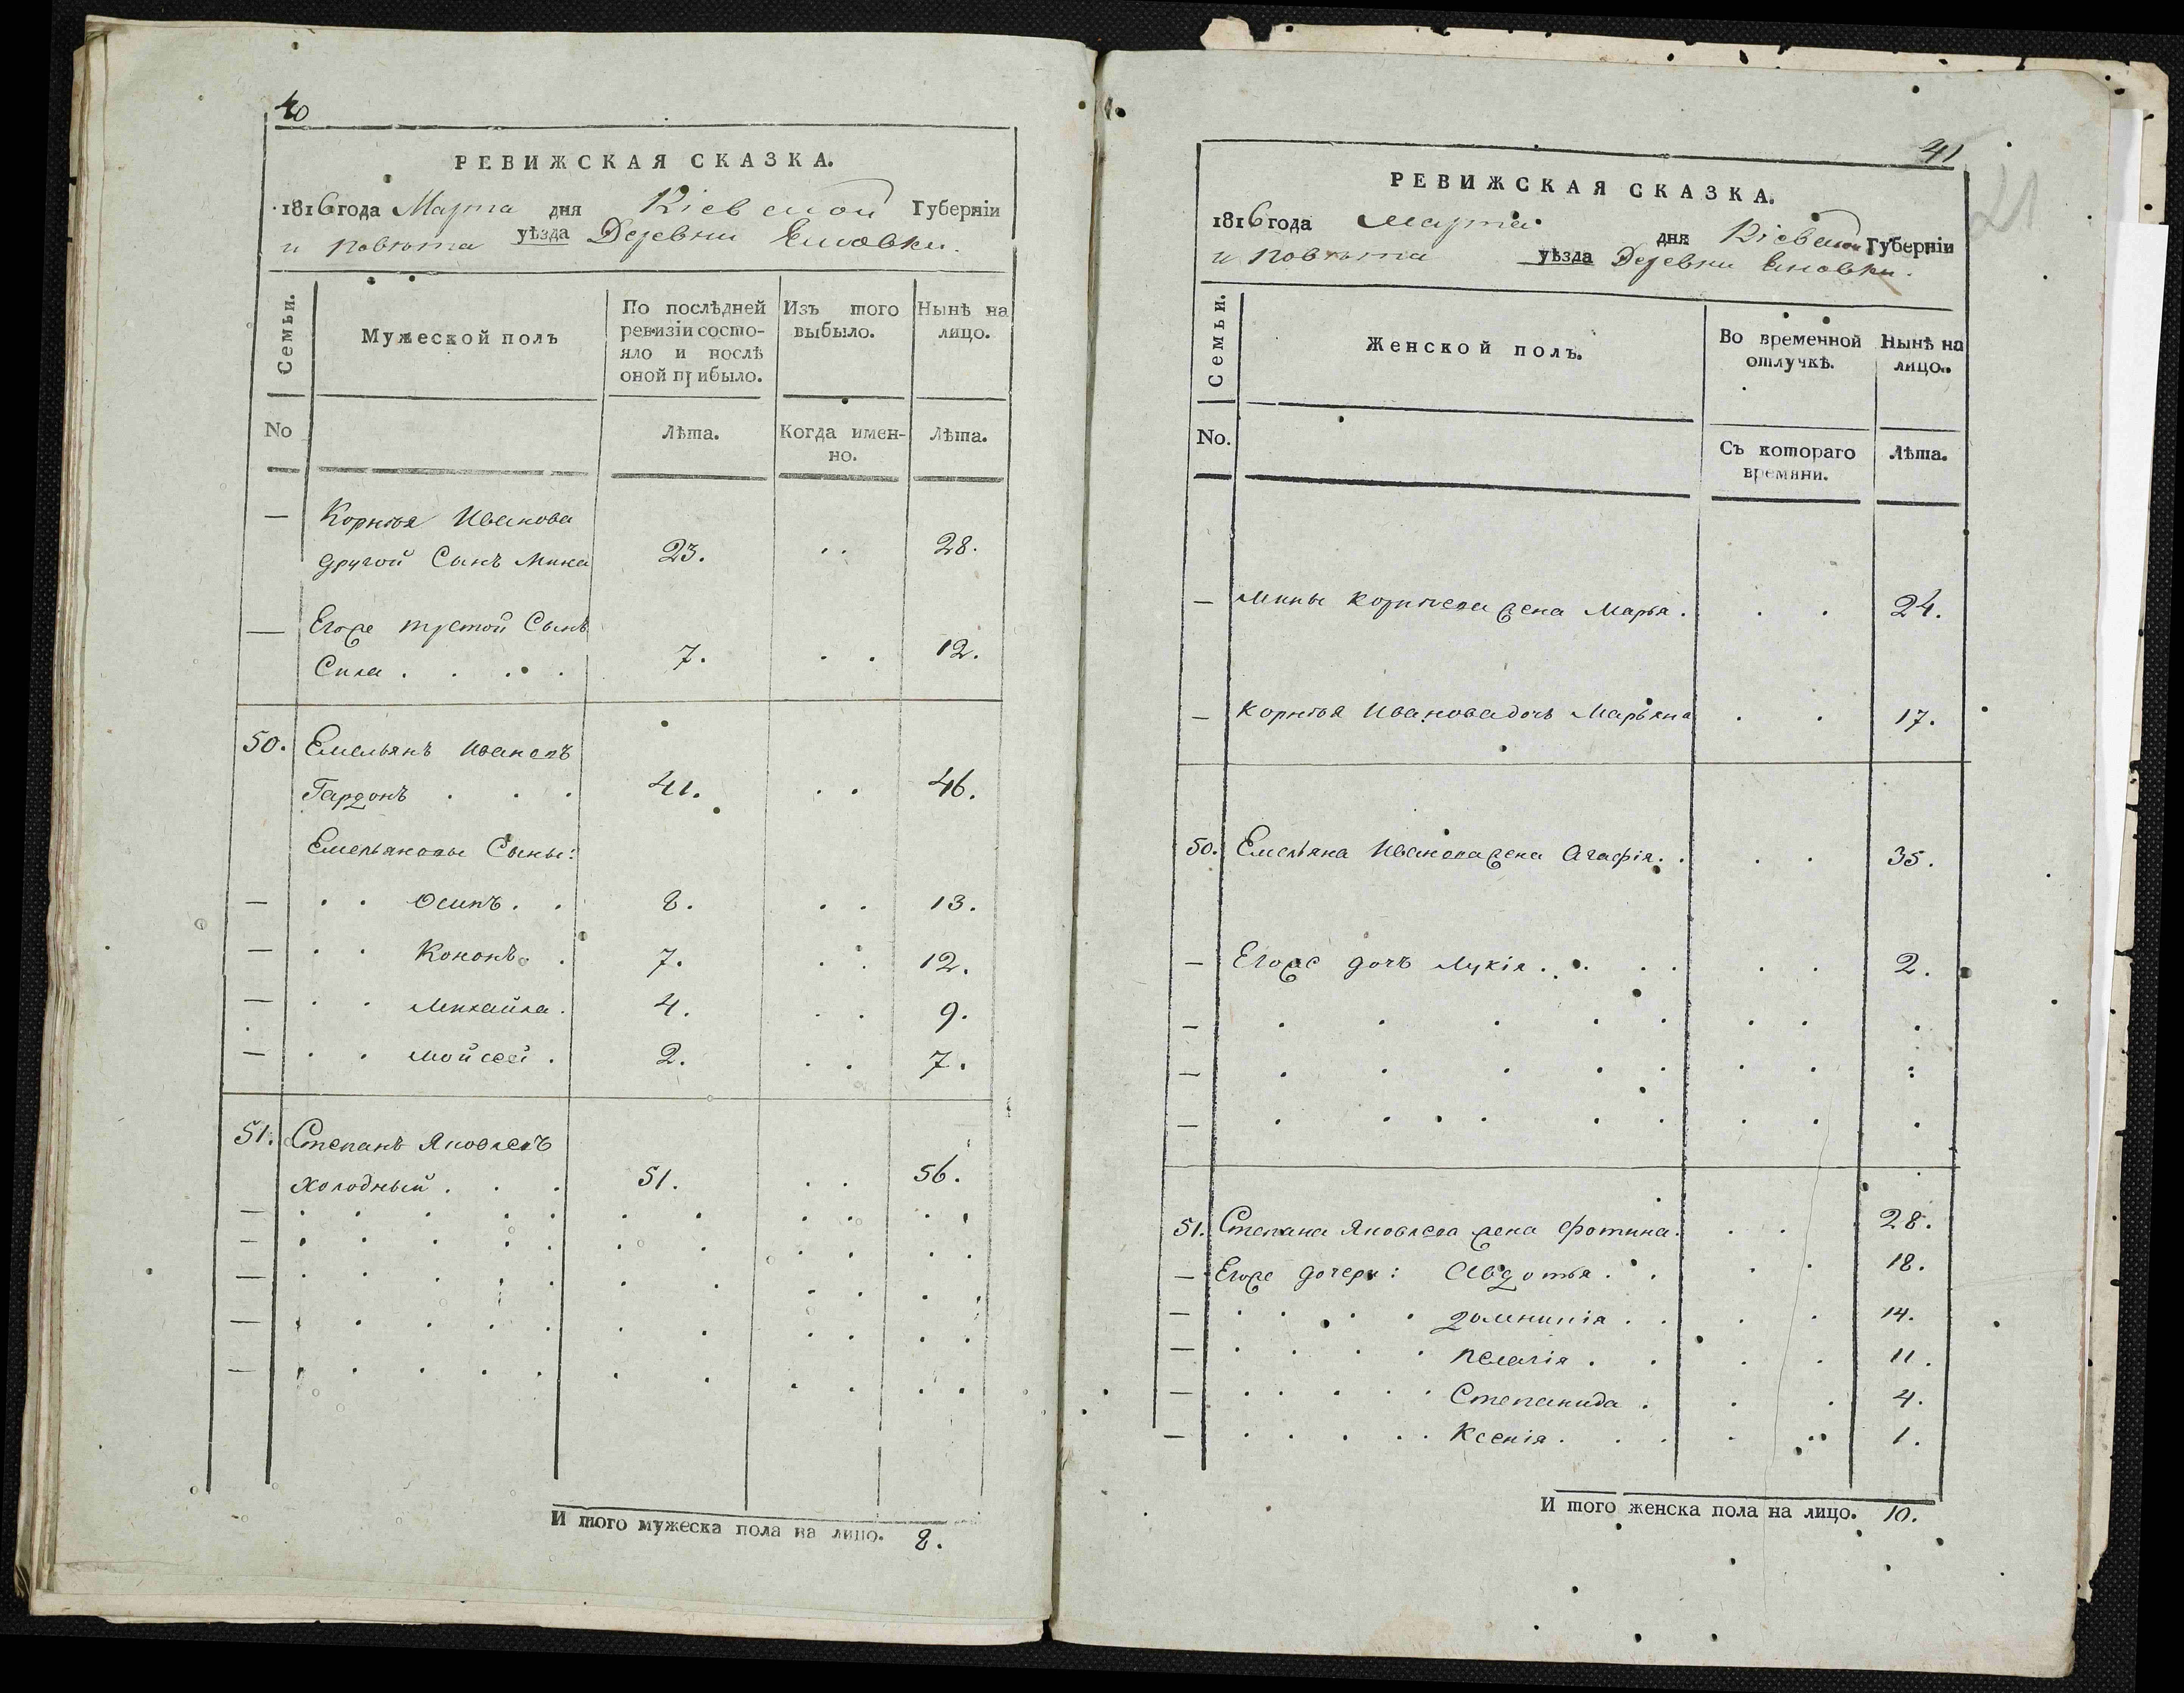 40
РЕВИЖСКАЯ СКАЗКА.
1816 года Марта дня Кіевской Губерніи
и повѣта уѣзда Деревни
Семьи.
Мужеской полъ
По послѣдней ревизіи состо-яло и послѣ оной прибыло.
Изъ того выбыло.
Нынѣ на лицо.
No
Лѣта.
Когда имен-но.
Лѣта.
— Корнѣя Иванова
другой Сынъ Мина 23. . . 28.
— Егоже третой Сынъ
Сила . . . . 7. . . 12.
50. Емельянъ Ивановъ
Гардонъ . . . 41. . . 46.
Емельяновы Сыны:
— . . Осипъ . . 8. . . 13.
— . . Кононъ . . 7. . . 12.
— . . Михайла . 4. . . 9.
— . . Мойсей . 2. . . 7.
51. Степанъ Яковлевъ
Холодный . . . 51. . . 56.
И того мужеска пола на лицо. 8.
41
21
РЕВИЖСКАЯ СКАЗКА.
1816 года Марта дня Кіевской Губерніи
и повѣта уѣзда Деревни
Семьи.
Женской полъ.
Во временной отлучкѣ.
Нынѣ на лицо.
No.
Съ котораго времяни.
Лѣта.
— Мины Корнѣева жена Марья . . . 24.
— Корнѣя Иванова дочь Марьяна . . 17.
50. Емельяна Иванова жена Агафія . . . . 35.
— Егоже дочъ Лукія . . . . . . 2.
51. Степана Яковлева жена Фотина . . . 28.
— Егоже дочери: Авдотья . . . . 18.
— . . . . . Домникія . . . . 14.
— . . . . Пелагія . . . . 11.
— . . . . . Степанида . . . 4.
— . . . . . Ксенія . . . . . 1.
И того женска пола на лицо. 10.